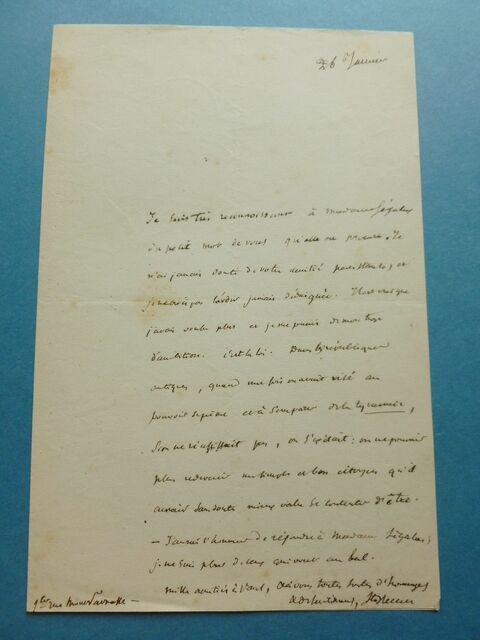 26 Janvier
Je suis très reconnaissant à Madame Ségalas
du petit mot de vous qu'elle me procure. Je
n'ai jamais douté de votre amitié persistante, et
je ne crois pas l'avoir jamais abdiquée. Il est vrai que
j'avais voulu plus et je me punis de mon trop
d'ambition. c'est la loi. Dans les républiques
antiques, quand une fois on avait visé au
pouvoir suprême et à s'emparer de la tyrannie,
si on ne réussissait pas, on s'expatriait : on ne pouvait
plus redevenir un simple et bon citoyen qu'il
aurait sans doute mieux valu se contenter d'être.
— J'aurai l'honneur de répondre à Madame Ségalas,
je ne suis plus de ceux qui vont au bal.
mille amitiés à Paul, à vous toutes sortes d'hommages
et de sentiments,
rue Mont Parnasse —